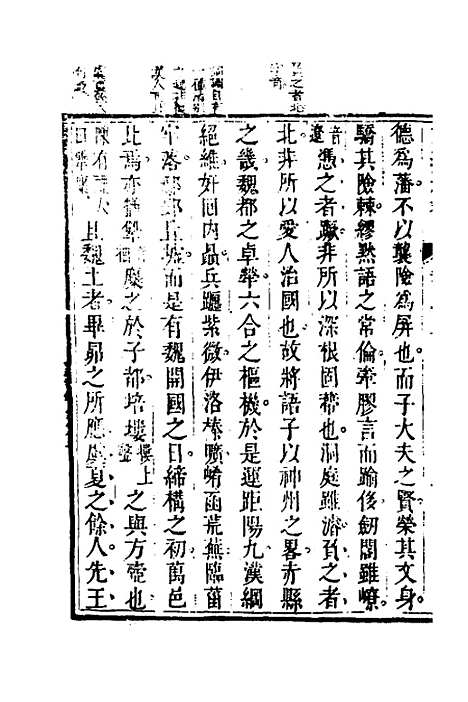 德為藩不以襲險為屏也而子大夫之賢榮其文身
驕其險棘繆默語之常倫牽膠言而踰侈劒閣雖嶛
音遼憑之者蹶非所以深根固蔕也洞庭雖濬負之者
北非所以愛人治國也故將語子以神州之畧赤縣
之畿魏都之卓犖六合之樞機於是運距陽九漢綱
絕維奸回內贔兵躔紫微伊洛榛曠崤函荒蕪臨菑
牢落鄢郢丘墟而是有魏開國之日締構之初萬邑
比焉亦猶犨麋之於子都培塿樓上聲之與方壺也
且魏土者畢昴之所應虞夏之餘人先王